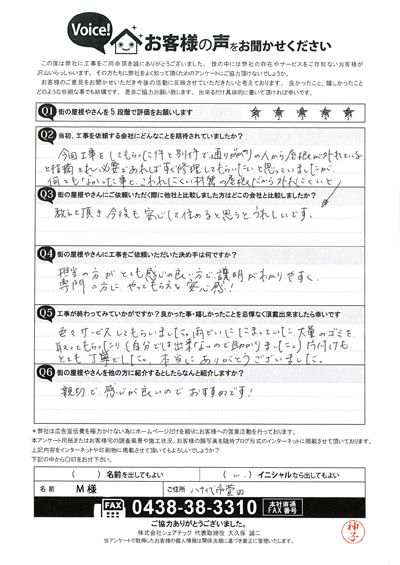 Voice!
お客様の声をお聞かせください
この度は弊社に工事をご用命頂き誠にありがとうございました。世の中には弊社の存在やサービスをご存知ないお客様が
沢山いらっしゃいます。その方たちに弊社をよく知って頂くためのアンケートにご協力頂けないでしょうか。
お客様のご意見をお聞かせいただき今後の活動に反映させていただきたいと考えております。良かったこと、嬉しかったこと
どのような些細な事でも結構です、是非ご協力お願い致します。出来るだけ具体的に書いて頂ければ幸いです。
Q1 街の屋根やさんを5段階で評価をお願いします ★ ★ ★ ★ ★
Q2 当初、工事を依頼する会社にどんなことを期待されていましたか?
今回工事をしてもらった件と別件で、通りがかりの人から屋根が外れている
と指摘され、必要であればすぐ修理してもらいたいと思っていましたが、
何ともなかった事と、こわれにくい材質の屋根だから外れにくいと
Q3 街の屋根やさんにご依頼いただく際に他社と比較しました方はどこの会社と比較しましたか?
教えて頂き今後も安心して住めると思うとうれしいです。
Q4 街の屋根やさんに工事をご依頼いただいた決め手は何ですか?
担当の方がとても感じの良い方で、説明がわかりやすく、
専門の方にやってもらえる安心感!
Q5 工事が終わってみていかがですか?良かった事・嬉しかったことを忌憚なく頂戴出来ましたら幸いです
色々サービスしてもらいました。雨どいにたまっていた大量のゴミを
取ってもらったり(自分では出来ないので助かりました。)片付けも
とても丁寧でした。本当にありがとうございました。
Q6 街の屋根やさんを他の方に紹介するとしたらなんと紹介しますか?
親切で感じが良いのでおすすめです!
*弊社は広告宣伝費を極力かけない為にホームページだけを頼りにお客様への営業活動を行っております。
本アンケート用紙またはお客様宅の調査風景や施工状況、お客様の顔写真を随時ブログ形式のインターネットに掲載させて頂いております。
上記内容をインターネットや印刷物に掲載させて頂いてもよろしいでしょうか?
下記の中から〇印をお付下さい。
( )名前を出してもよい ( )イニシャルなら出してもよい
名前 M様 ご住所 八千代市萱田
FAX 0438-38-3310 本社直通 FAX番号
ご協力ありがとうございました。
株式会社シェアテック 代表取締役 大久保 誠二
当アンケートで取得したお客様の個人情報は関係法规に基づき厳正に管理いたします。